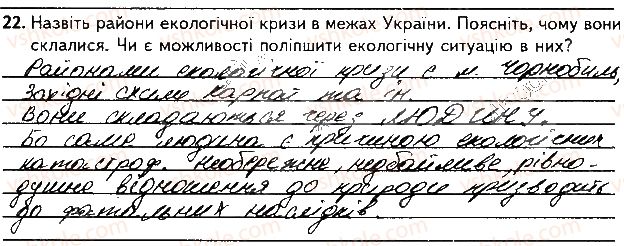 22. Назвіть райони екологічної кризи в межах України. Поясніть, чому вони
склалися. Чи є можливості поліпшити екологічну ситуацію в них?
Районами екологічної кризи є м. Чорнобиль,
Західні схили Карпат та ін.
Вони складаються через ЛЮДИНУ.
Бо саме людина є причиною екологічних
катастроф. Необережне, недбайливе, рівно-
душне відношення до природи призводить
до фатальних наслідків.